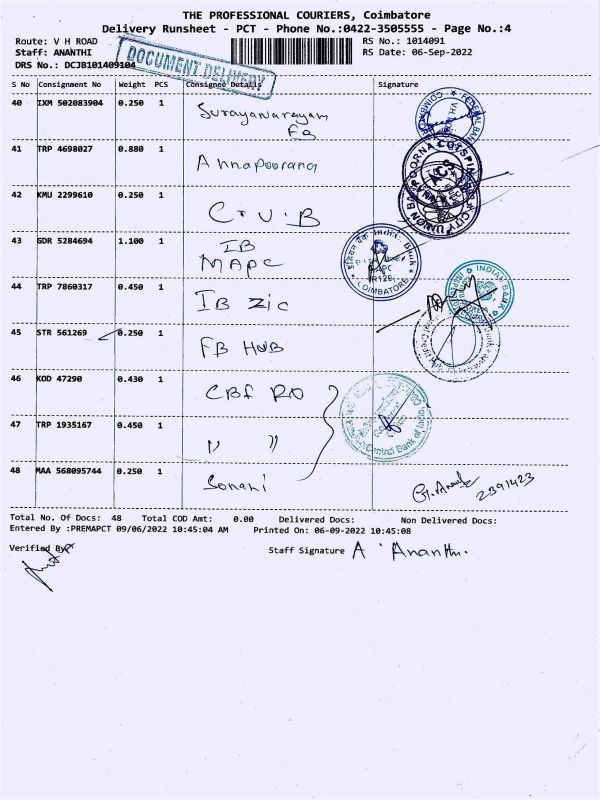 THE PROFESSIONAL COURIERS, Coimbatore
Delivery Runsheet - PCT - Phone No.:0422-3505555 - Page No.:4
Route: V H ROAD
RS No.: 1014091
Staff: ANANTHI
RS Date: 06-Sep-2022
DRS No.: DCJB101409104
DOCUMENT DELIVERY
S No Consignment No Weight PCS Consignee Details Signature
40 IXM 502083904 0.250 1 Surayanarayam
FB
41 TRP 4698027 0.880 1 Annapoorana
42 KMU 2299610 0.250 1 C.U.B
43 GDR 5284694 1.100 1 IB
MAPC
44 TRP 7860317 0.450 1 IB ZIC
45 STR 561269 0.250 1 FB HUB
46 KOD 47290 0.430 1 CBI RO
47 TRP 1935167 0.450 1 " "
48 MAA 568095744 0.250 1 Sonani
2391423
FEDERAL BANK
COIMBATORE
V.H.
CITY UNION BANK
ACS
Indian Bank
COIMBATORE
INDIAN BANK
Central Bank of India
Total No. Of Docs: 48 Total COD Amt: 0.00 Delivered Docs: Non Delivered Docs:
Entered By :PREMAPCT 09/06/2022 10:45:04 AM Printed On: 06-09-2022 10:45:08
Verified By
Staff Signature A. Ananthi.